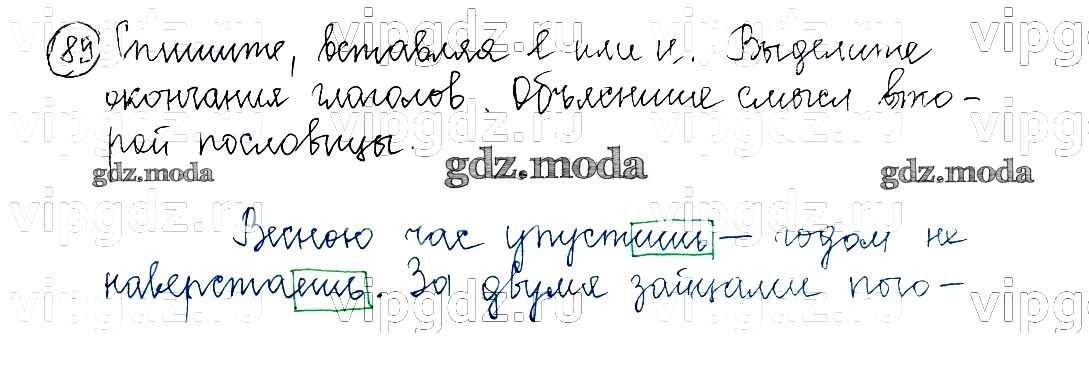 89 Спишите, вставляя е или и. Выделите
окончания глаголов. Объясните смысл вто-
рой пословицы.
gdz.moda gdz.moda gdz.moda
Весною час упустишь – годом не
наверстаешь. За двумя зайцами пого-